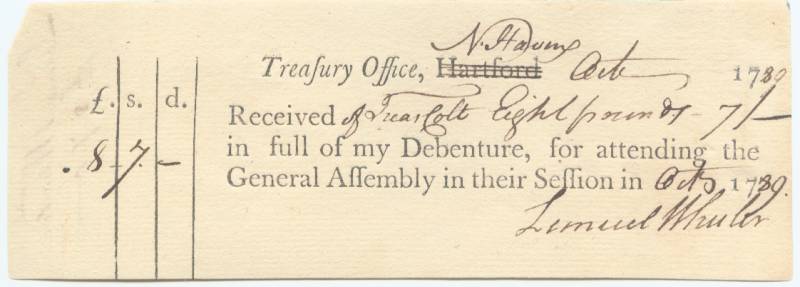 N. Haven
Treaſury Office, Hartford Octr 1789
£. s. d.
Received of Treasr Colt Eight pounds - 7/-
8 - 7. -
in full of my Debenture, for attending the
General Aſſembly in their Seſſion in Octr 1789.
Lemuel Wheeler